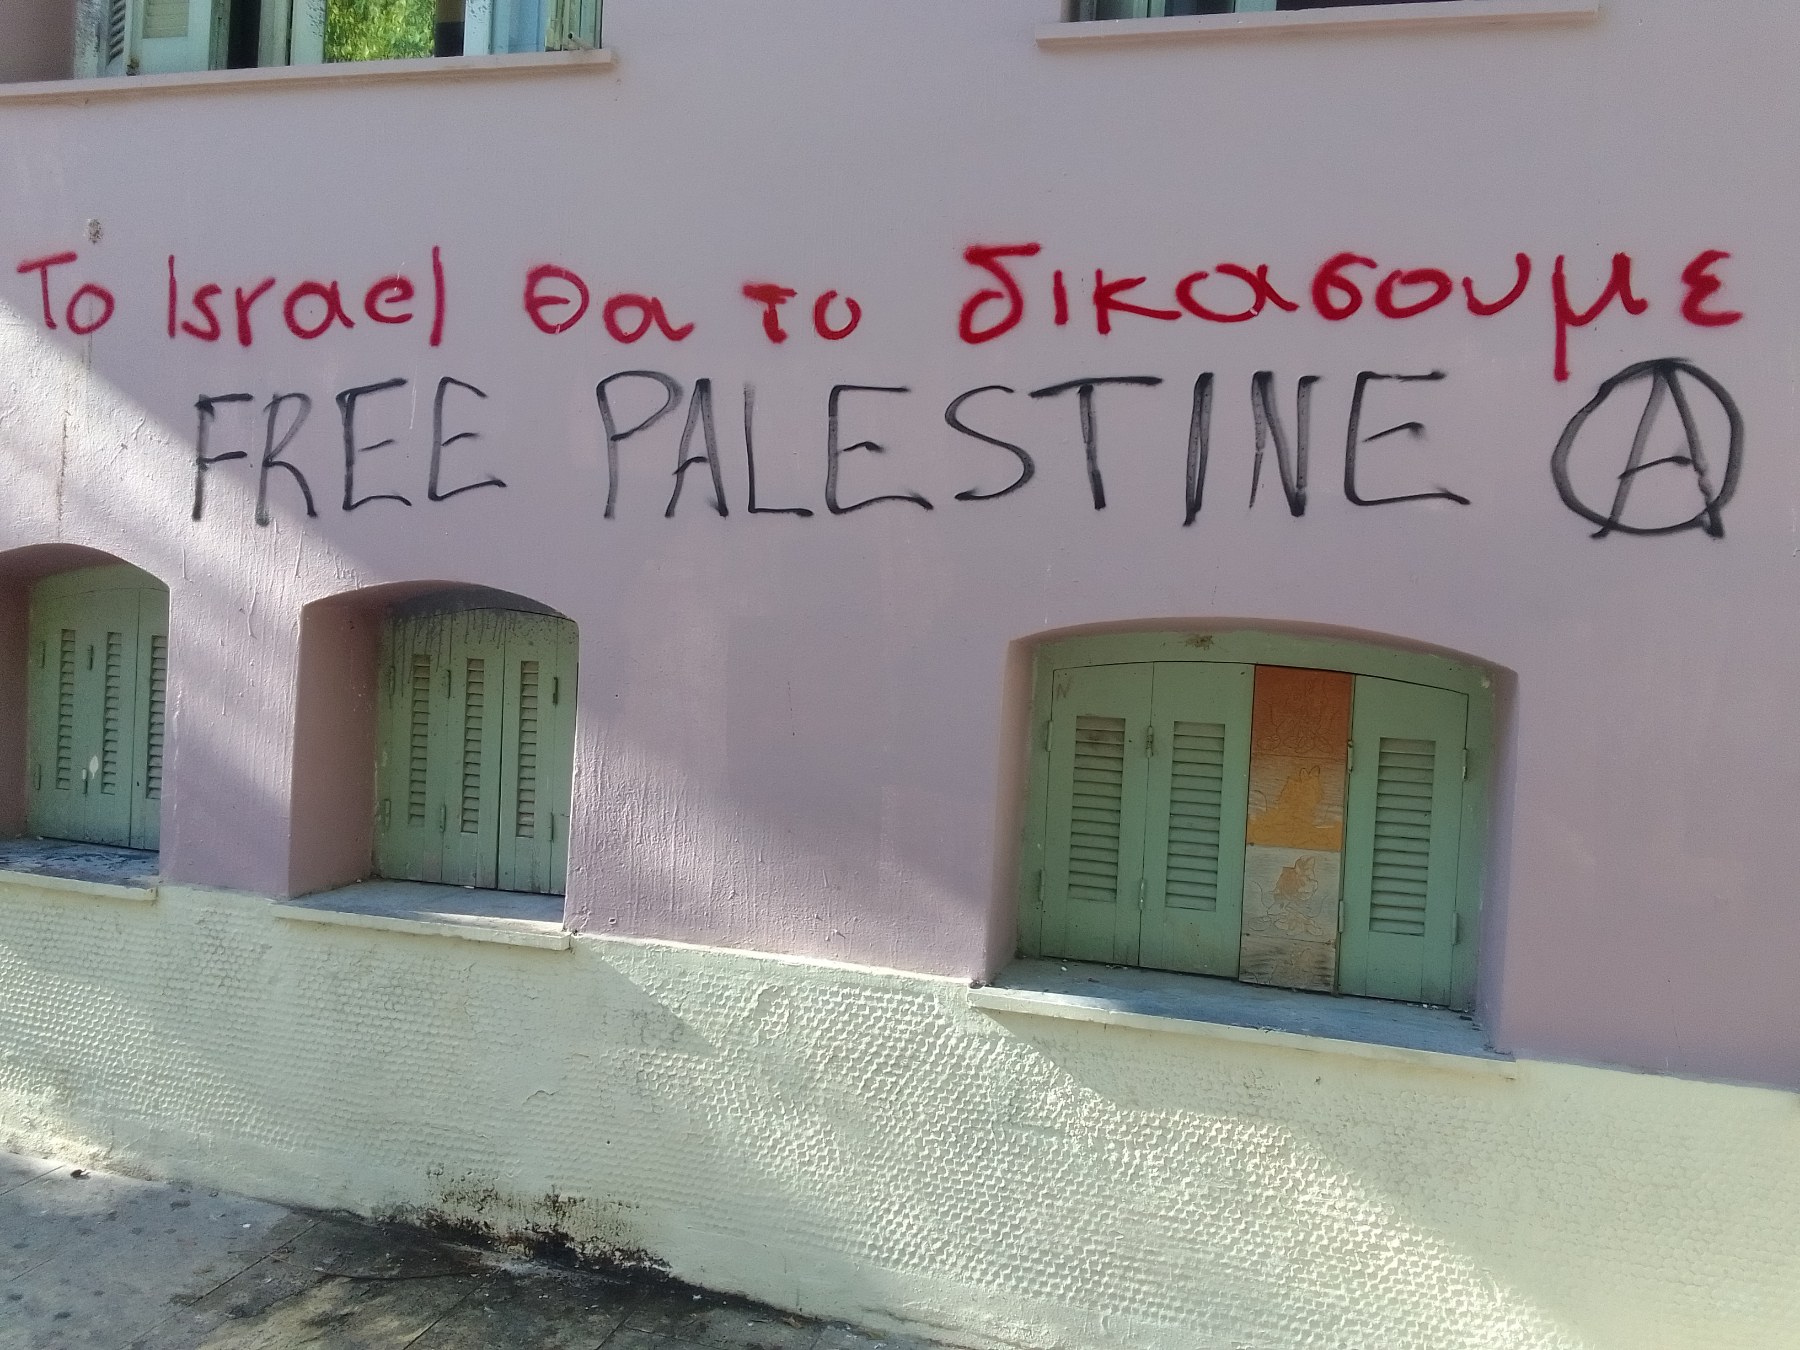 Το Israel θα το δικασουμε
FREE PALESTINE Ⓐ